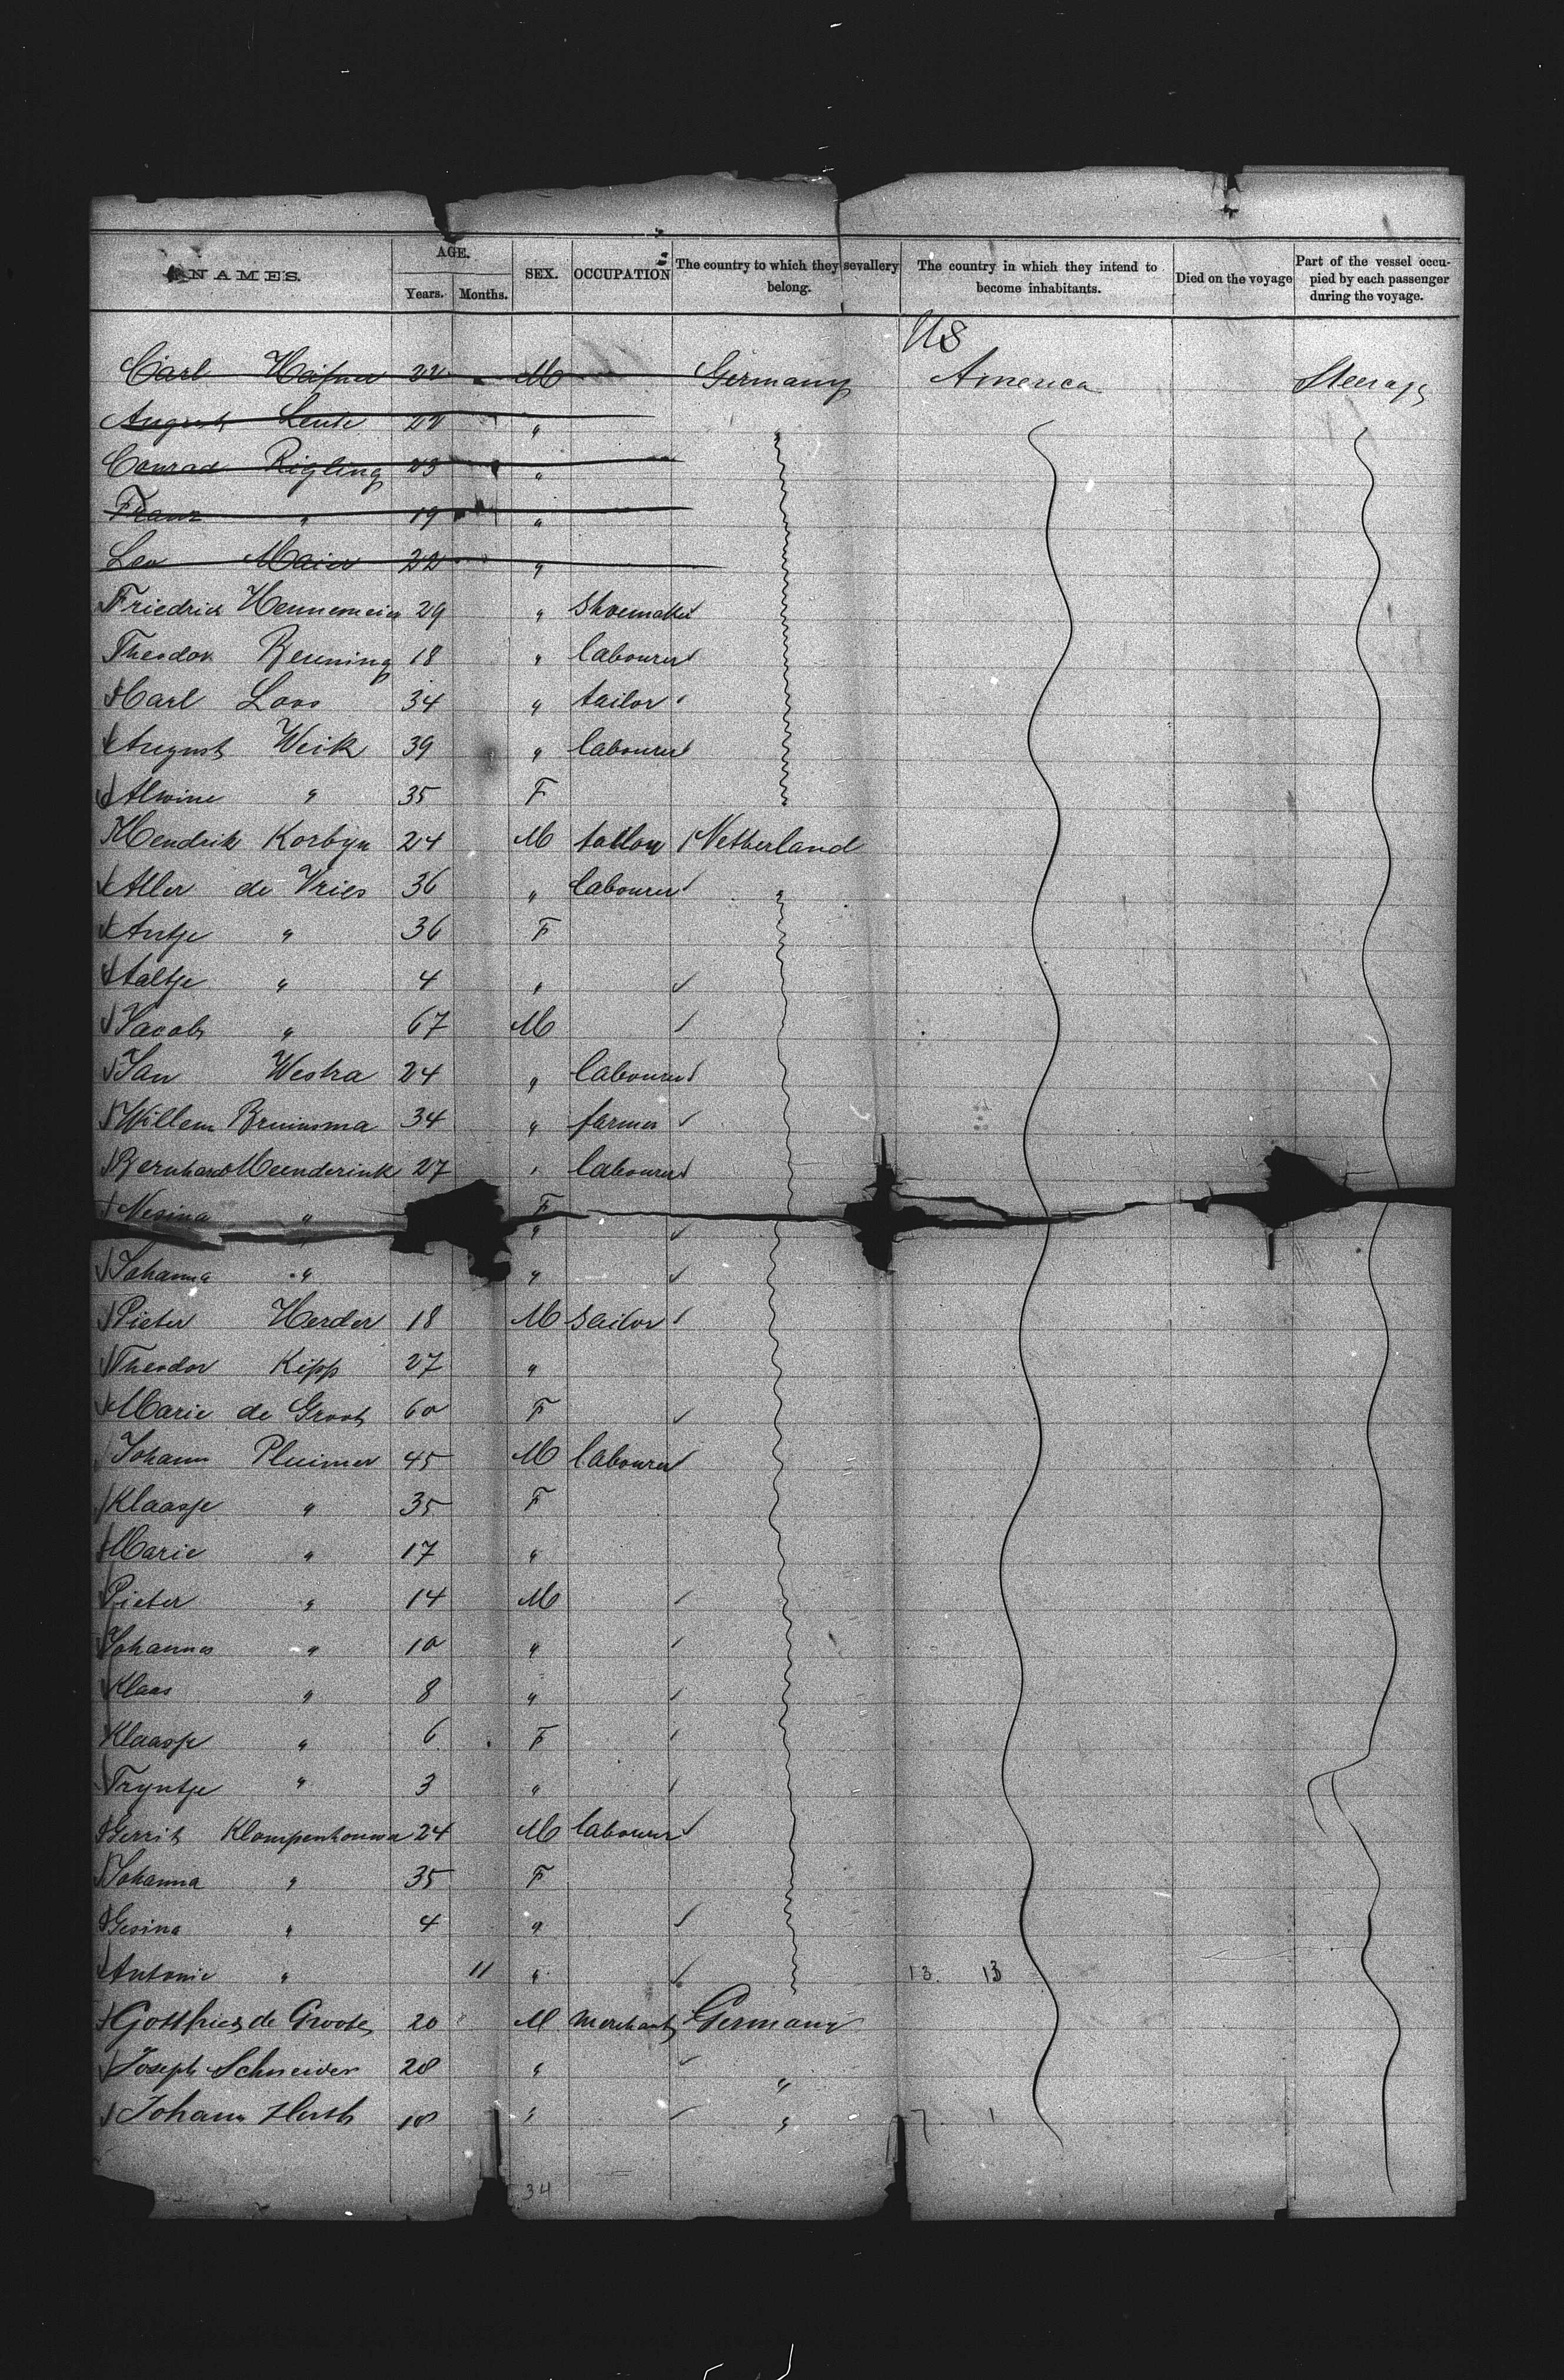 NAMES. AGE. Years. Months. SEX. OCCUPATION The country to which they sevallery belong. The country in which they intend to become inhabitants. Died on the voyage Part of the vessel occupied by each passenger during the voyage.
US
Carl Hafner 22 M Germany America Steerage
August 22 "
Conrad Rigling 23 "
Franz " 19 "
Leo Maier 22 "
Friedrich Hennemeier 29 " shoemaker
Theodor Benning 18 " labourer
Carl Loos 34 " tailor
August Weik 39 " labourer
Alwine " 35 F
Hendrik Korbyn 24 M Netherland
Aller de Vries 36 " labourer "
Antje " 36 F
Aaltje " 4 "
Jacob " 67 M
Jan Westra 24 " labourer
Willem Bruinsma 34 " farmer
Bernhard Meenderink 27 " labourer
" F
" "
Johanna " "
Pieter Herder 18 M sailor
Theodor Kipp 27 "
Marie de Groot 60 F
Johann Pluimer 45 M labourer
Klaasje " 35 F
Marie " 17 "
Pieter " 14 M
Johannes " 10 "
Klaas " 8 "
Klaasje " 6 F
Tryntje " 3 "
Gerrit Klompenhouwer 24 M labourer
Johanna " 35 F
Gesina " 4 "
Antonie " 11 " 13. 13
Gottfried de Groote 20 M merchant Germany
Joseph Schneider 28 " "
Johann 18 " " 7 1
34